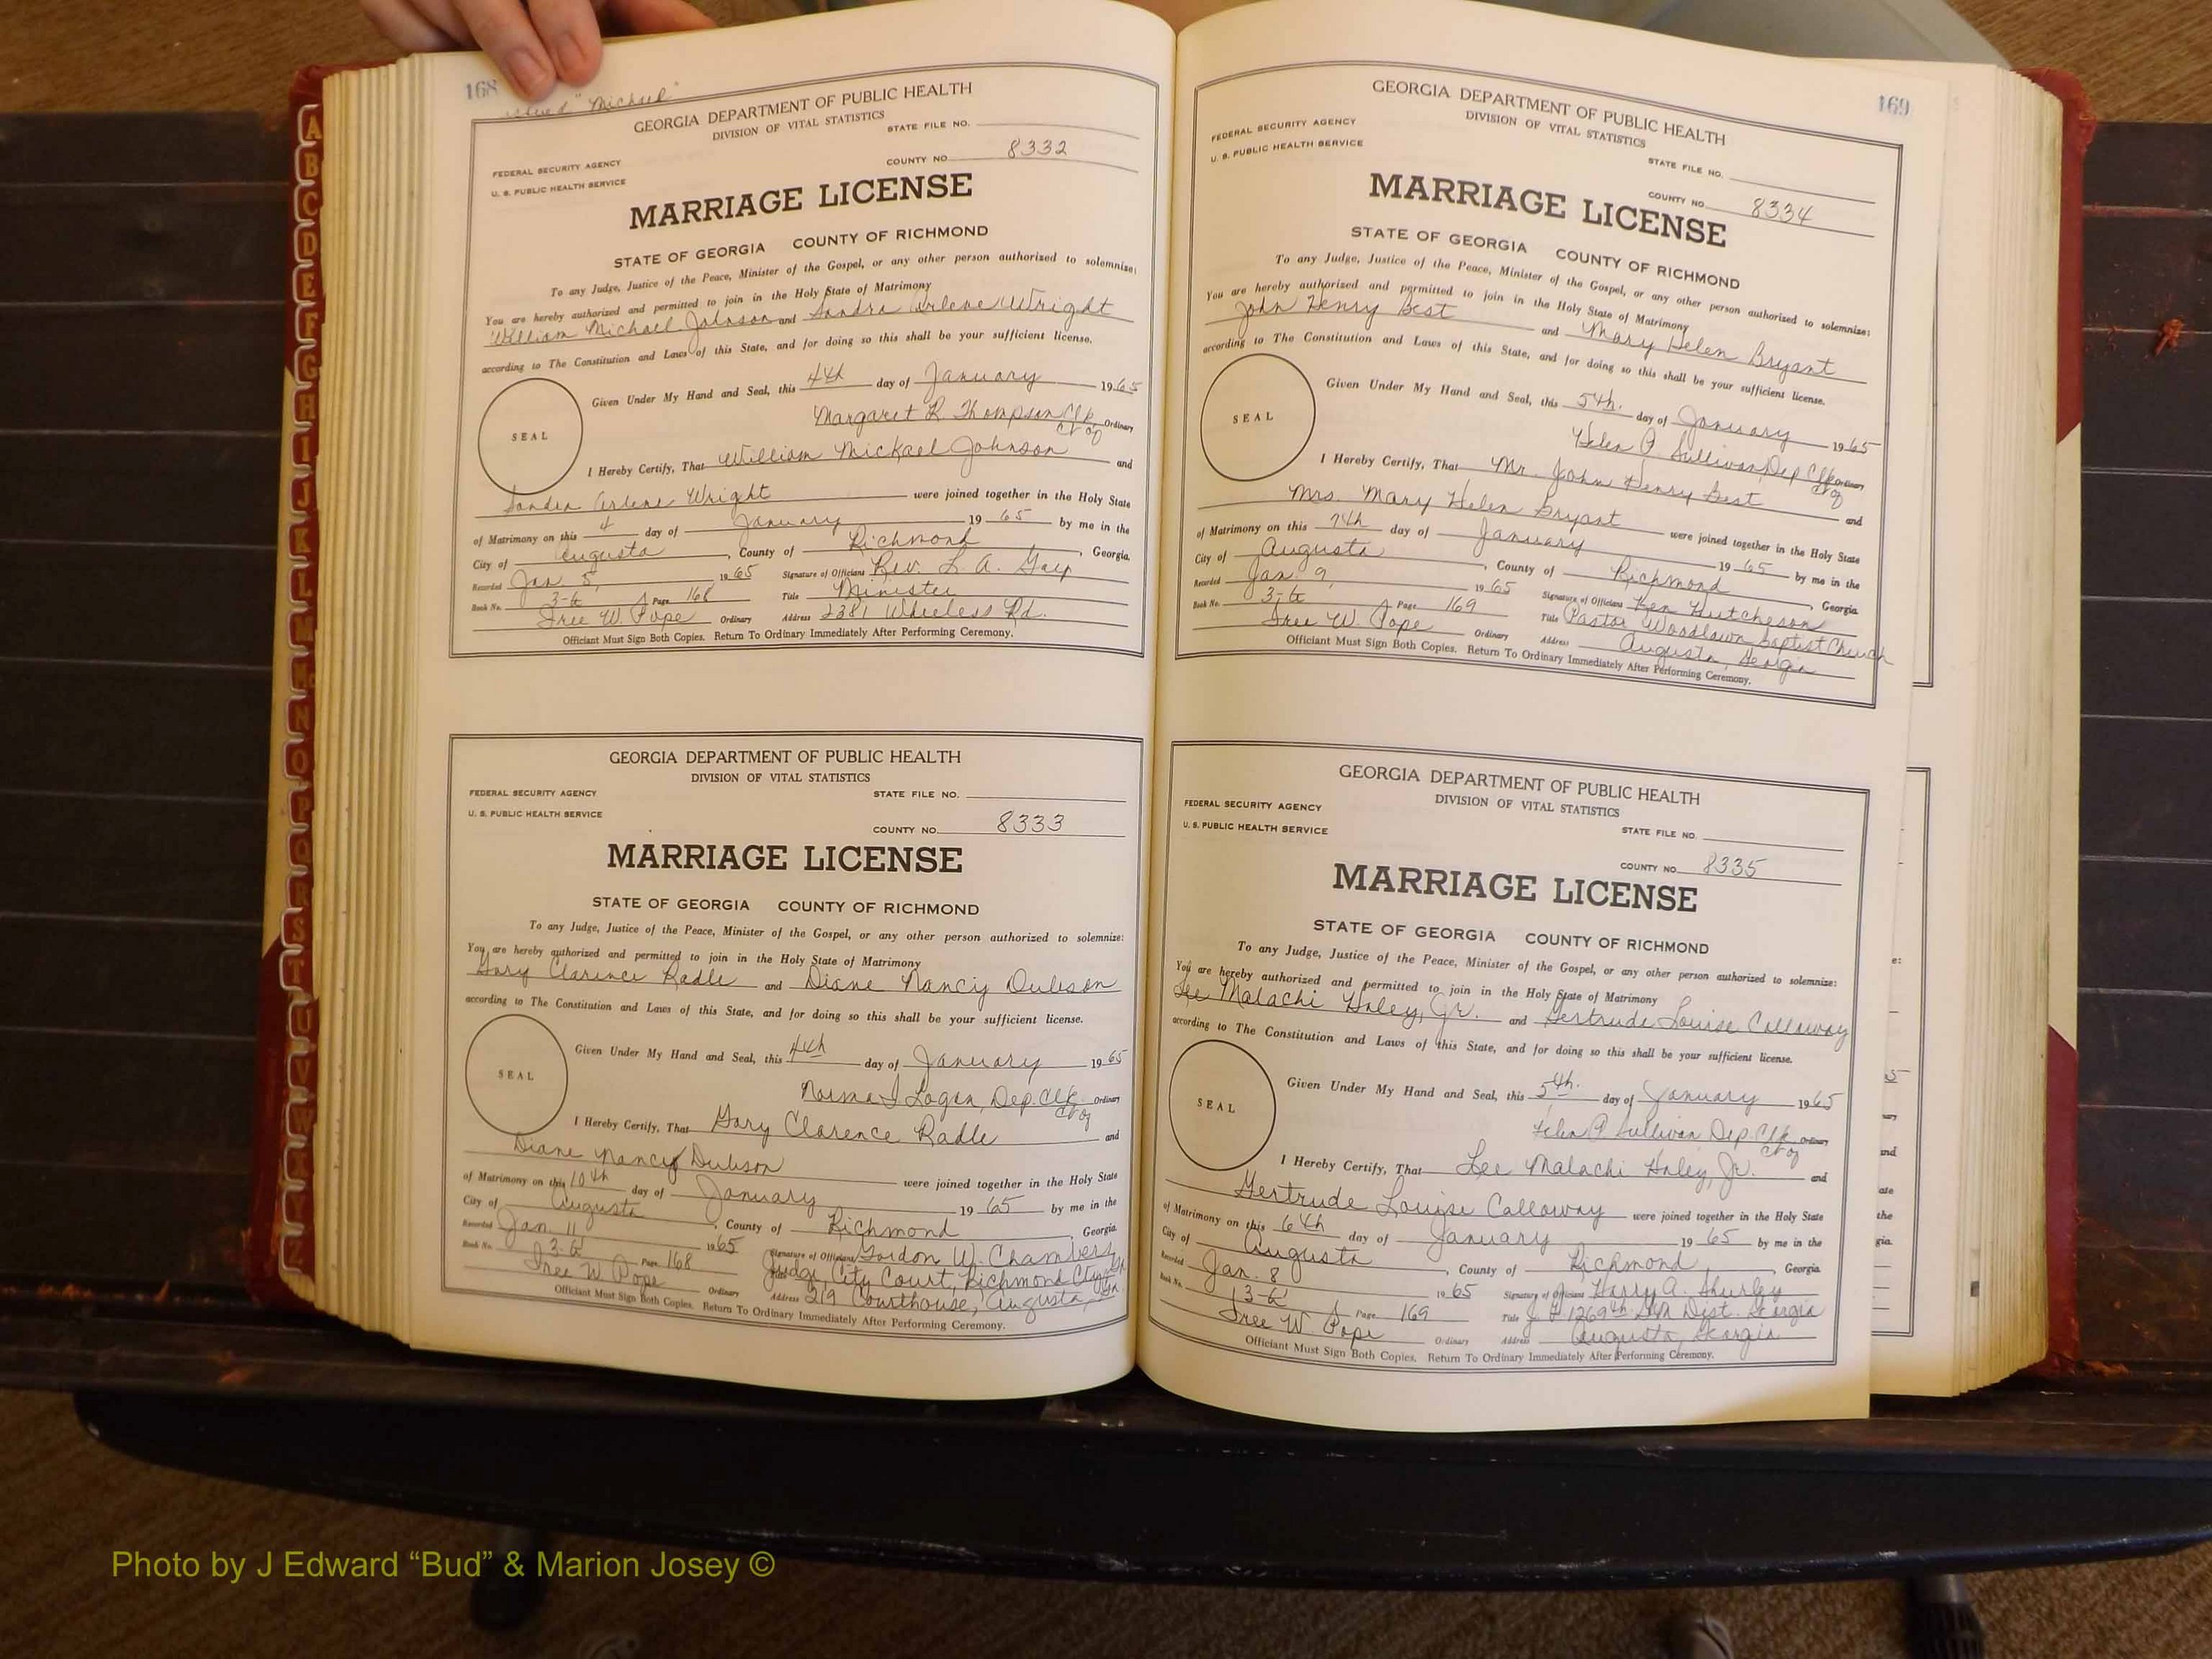 168
"Michael"
GEORGIA DEPARTMENT OF PUBLIC HEALTH
DIVISION OF VITAL STATISTICS
STATE FILE NO.
FEDERAL SECURITY AGENCY
U. S. PUBLIC HEALTH SERVICE
COUNTY NO. 8332
MARRIAGE LICENSE
STATE OF GEORGIA COUNTY OF RICHMOND
To any Judge, Justice of the Peace, Minister of the Gospel, or any other person authorized to solemnize:
You are hereby authorized and permitted to join in the Holy State of Matrimony
William Michael Johnson and Sandra Arlene Wright
according to The Constitution and Laws of this State, and for doing so this shall be your sufficient license.
SEAL
Given Under My Hand and Seal, this 4th day of January 1965
Margaret R Thompson Clk Ordinary
Ct of
I Hereby Certify, That William Mickael Johnson and
Sandra Arlene Wright were joined together in the Holy State
of Matrimony on this 4 day of January 19 65 by me in the
City of Augusta, County of Richmond, Georgia.
Recorded Jan. 5, 1965 Signature of Officiant Rev. L. A. Gay
Book No. 3-G Page 168 Title Minister
Iree W. Pope Ordinary Address 2381 Wheeless Rd.
Officiant Must Sign Both Copies. Return To Ordinary Immediately After Performing Ceremony.
GEORGIA DEPARTMENT OF PUBLIC HEALTH
DIVISION OF VITAL STATISTICS
FEDERAL SECURITY AGENCY
STATE FILE NO.
U. S. PUBLIC HEALTH SERVICE
COUNTY NO. 8333
MARRIAGE LICENSE
STATE OF GEORGIA COUNTY OF RICHMOND
To any Judge, Justice of the Peace, Minister of the Gospel, or any other person authorized to solemnize:
You are hereby authorized and permitted to join in the Holy State of Matrimony
Gary Clarence Radle and Diane Nancy Dubson
according to The Constitution and Laws of this State, and for doing so this shall be your sufficient license.
SEAL
Given Under My Hand and Seal, this 4th day of January 1965
Norma I Logan, Dep. Clk. Ordinary
Ct of
I Hereby Certify, That Gary Clarence Radle and
Diane Nancy Dubson were joined together in the Holy State
of Matrimony on this 10th day of January 19 65 by me in the
City of Augusta, County of Richmond, Georgia.
Recorded Jan. 11 1965 Signature of Officiant Gordon W. Chambers
Book No. 3-G Page 168 Title Judge, City Court, Richmond Cty, Ga.
Iree W. Pope Ordinary Address 219 Courthouse, Augusta, Ga.
Officiant Must Sign Both Copies. Return To Ordinary Immediately After Performing Ceremony.
169
GEORGIA DEPARTMENT OF PUBLIC HEALTH
DIVISION OF VITAL STATISTICS
FEDERAL SECURITY AGENCY
U. S. PUBLIC HEALTH SERVICE
STATE FILE NO.
COUNTY NO. 8334
MARRIAGE LICENSE
STATE OF GEORGIA COUNTY OF RICHMOND
To any Judge, Justice of the Peace, Minister of the Gospel, or any other person authorized to solemnize:
You are hereby authorized and permitted to join in the Holy State of Matrimony
John Henry Best and Mary Helen Bryant
according to The Constitution and Laws of this State, and for doing so this shall be your sufficient license.
SEAL
Given Under My Hand and Seal, this 5th. day of January 1965
Helen P. Sullivan, Dep Clk Ordinary
Ct of
I Hereby Certify, That Mr. John Henry Best and
Mrs. Mary Helen Bryant were joined together in the Holy State
of Matrimony on this 7th day of January 19 65 by me in the
City of Augusta, County of Richmond, Georgia.
Recorded Jan. 9, 1965 Signature of Officiant Ken Hutcheson
Book No. 3-G Page 169 Title Pastor Woodlawn Baptist Church
Iree W. Pope Ordinary Address Augusta, Georgia
Officiant Must Sign Both Copies. Return To Ordinary Immediately After Performing Ceremony.
GEORGIA DEPARTMENT OF PUBLIC HEALTH
DIVISION OF VITAL STATISTICS
FEDERAL SECURITY AGENCY
U. S. PUBLIC HEALTH SERVICE
STATE FILE NO.
COUNTY NO. 8335
MARRIAGE LICENSE
STATE OF GEORGIA COUNTY OF RICHMOND
To any Judge, Justice of the Peace, Minister of the Gospel, or any other person authorized to solemnize:
You are hereby authorized and permitted to join in the Holy State of Matrimony
Lee Malachi Haley, Jr. and Gertrude Louise Callaway
according to The Constitution and Laws of this State, and for doing so this shall be your sufficient license.
SEAL
Given Under My Hand and Seal, this 5th. day of January 1965
Helen P. Sullivan Dep. Clk Ordinary
Ct of
I Hereby Certify, That Lee Malachi Haley, Jr. and
Gertrude Louise Calloway were joined together in the Holy State
of Matrimony on this 6th day of January 19 65 by me in the
City of Augusta, County of Richmond, Georgia.
Recorded Jan. 8 1965 Signature of Officiant Harry A. Shurley
Book No. 3-G Page 169 Title J P 1269th GM Dist. Georgia
Iree W. Pope Ordinary Address Augusta, Georgia
Officiant Must Sign Both Copies. Return To Ordinary Immediately After Performing Ceremony.
A
B
C
D
E
F
G
H
I
J
K
L
M
N
O
P
Q
R
S
T
U
V
W
Z
Photo by J Edward “Bud” & Marion Josey ©